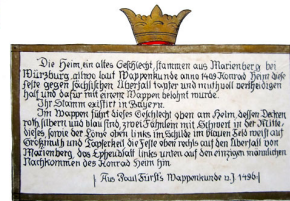 Die Heim, ein altes Geschlecht, stammen aus Marienberg bei
Würzburg, allwo laut Wappenkunde anno 1409 Konrad Heim diese
Feste gegen sächsischen Überfall tapfer und mutvoll vertheidigen
half und dafür mit einem Wappen belohnt wurde.
Ihr Stamm existirt in Bayern.
Im Wappen führt dieses Geschlecht oben am Helm, dessen Decken
roth, silbern und blau sind, zwei Fähnlein mit Schwert in der Mitte
dieses, sowie der Löwe oben links im Schilde im blauen Feld weist auf
Großmuth und Tapferkeit die Feste oben rechts auf den Überfall von
Marienberg, das Epheublatt links unten auf den einzigen männlichen
Nachkommen des Konrad Heim hin.
Aus Paul Fürsts Wappenkunde v. J. 1496